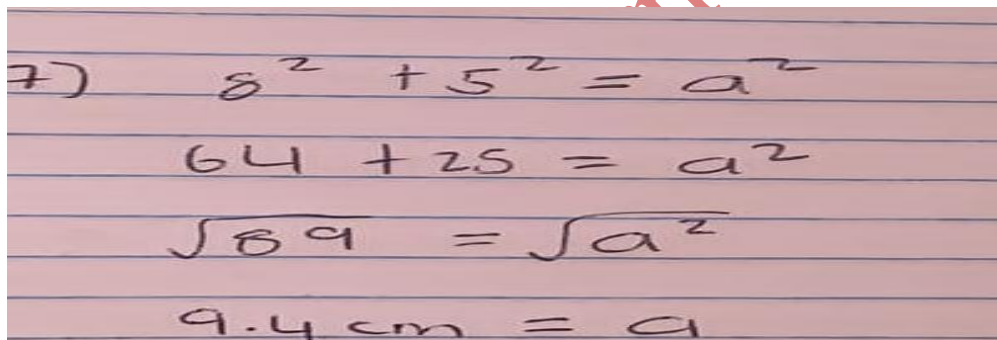 7) 8² + 5² = a²
64 + 25 = a²
√89 = √a²
9.4 cm = a